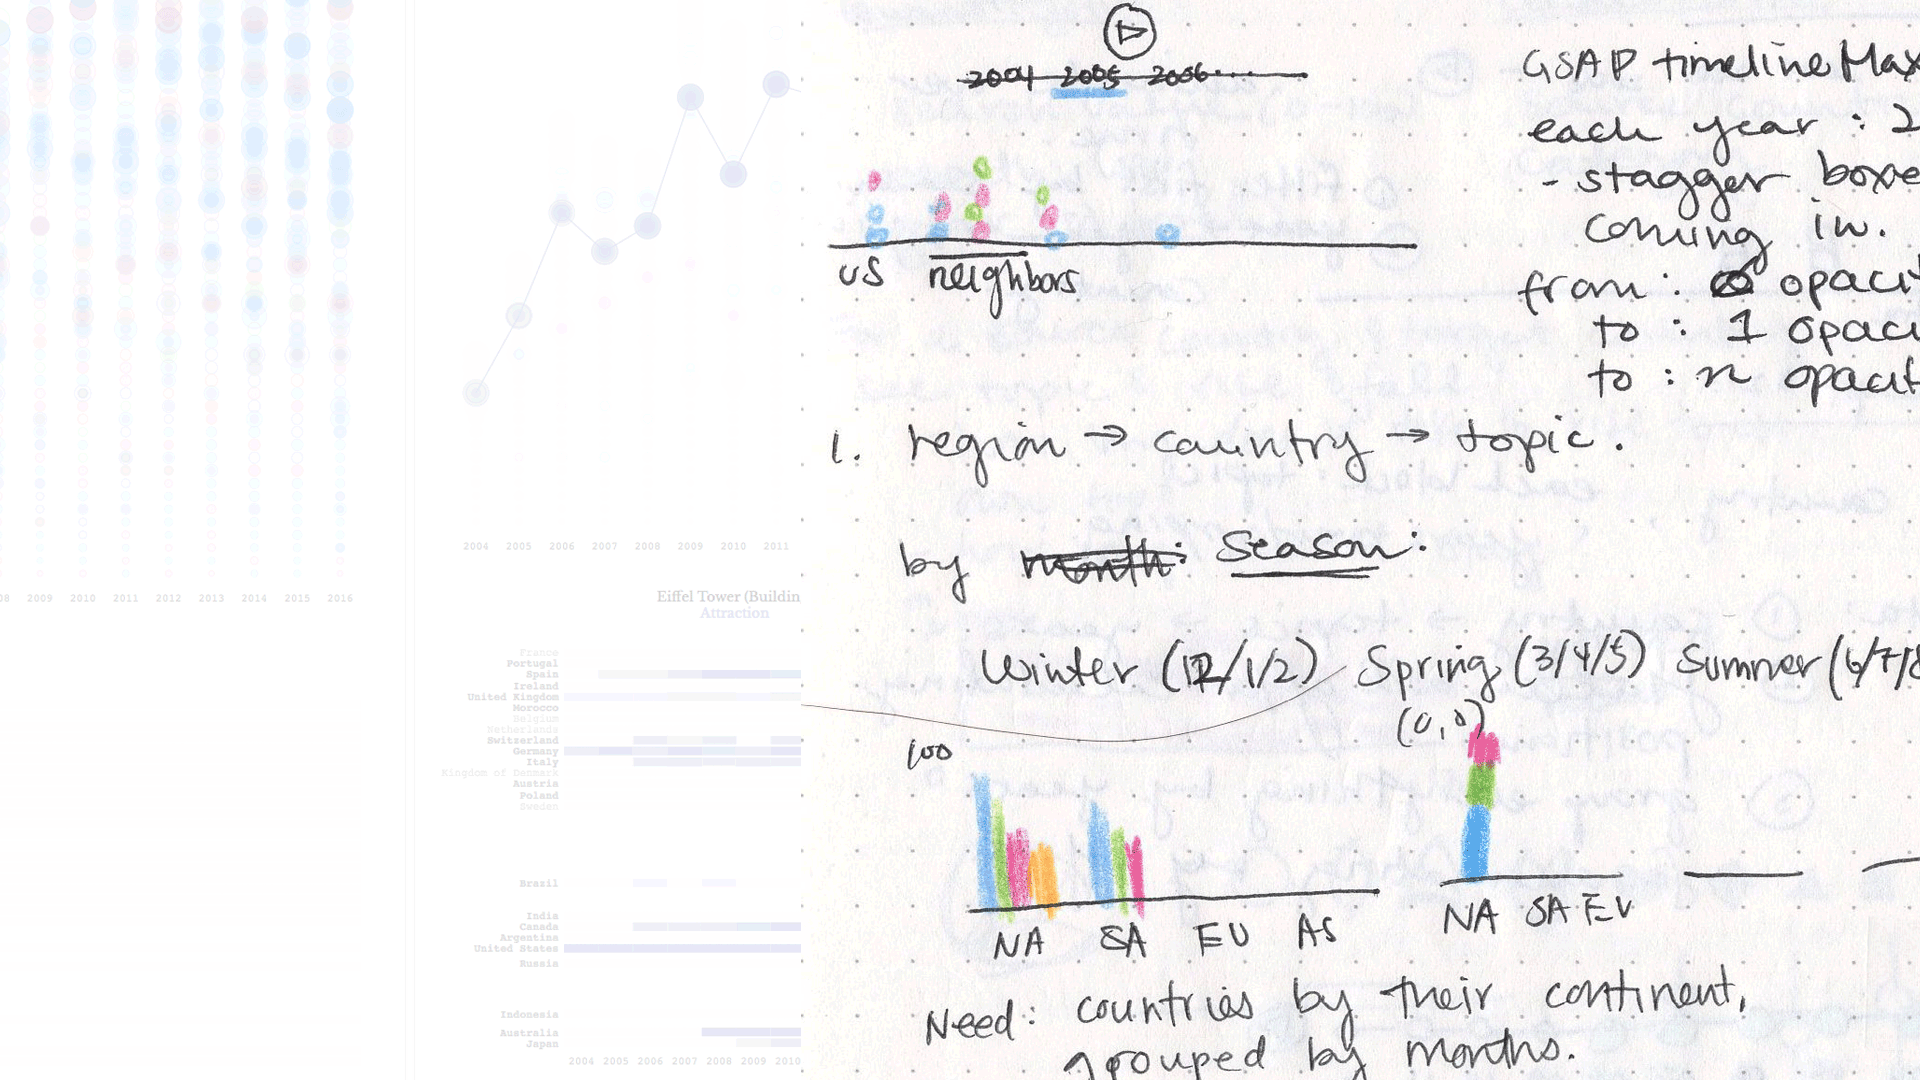 2009 2010 2011 2012 2013 2014 2015 2016
2004 2005 2006 2007 2008 2009 2010 2011
Eiffel Tower (Buildin
Attraction
France
Portugal
Spain
Ireland
United Kingdom
Morocco
Belgium
Netherlands
Switzerland
Germany
Italy
Kingdom of Denmark
Austria
Poland
Sweden
Brazil
India
Canada
Argentina
United States
Russia
Indonesia
Australia
Japan
2004 2005 2006 2007 2008 2009 2010
2004 2005 2006....
US neighbors
GSAP timelineMax
each year : 2
- stagger boxe
coming in.
from : 0 opacit
to : 1 opaci
to : n opacit
1. region → country → topic.
by month: Season:
Winter (12/1/2) Spring (3/4/5) Summer (6/7/8
100
NA SA EU AS
(0,0)
NA SA EU
Need: countries by their continent,
grouped by months.